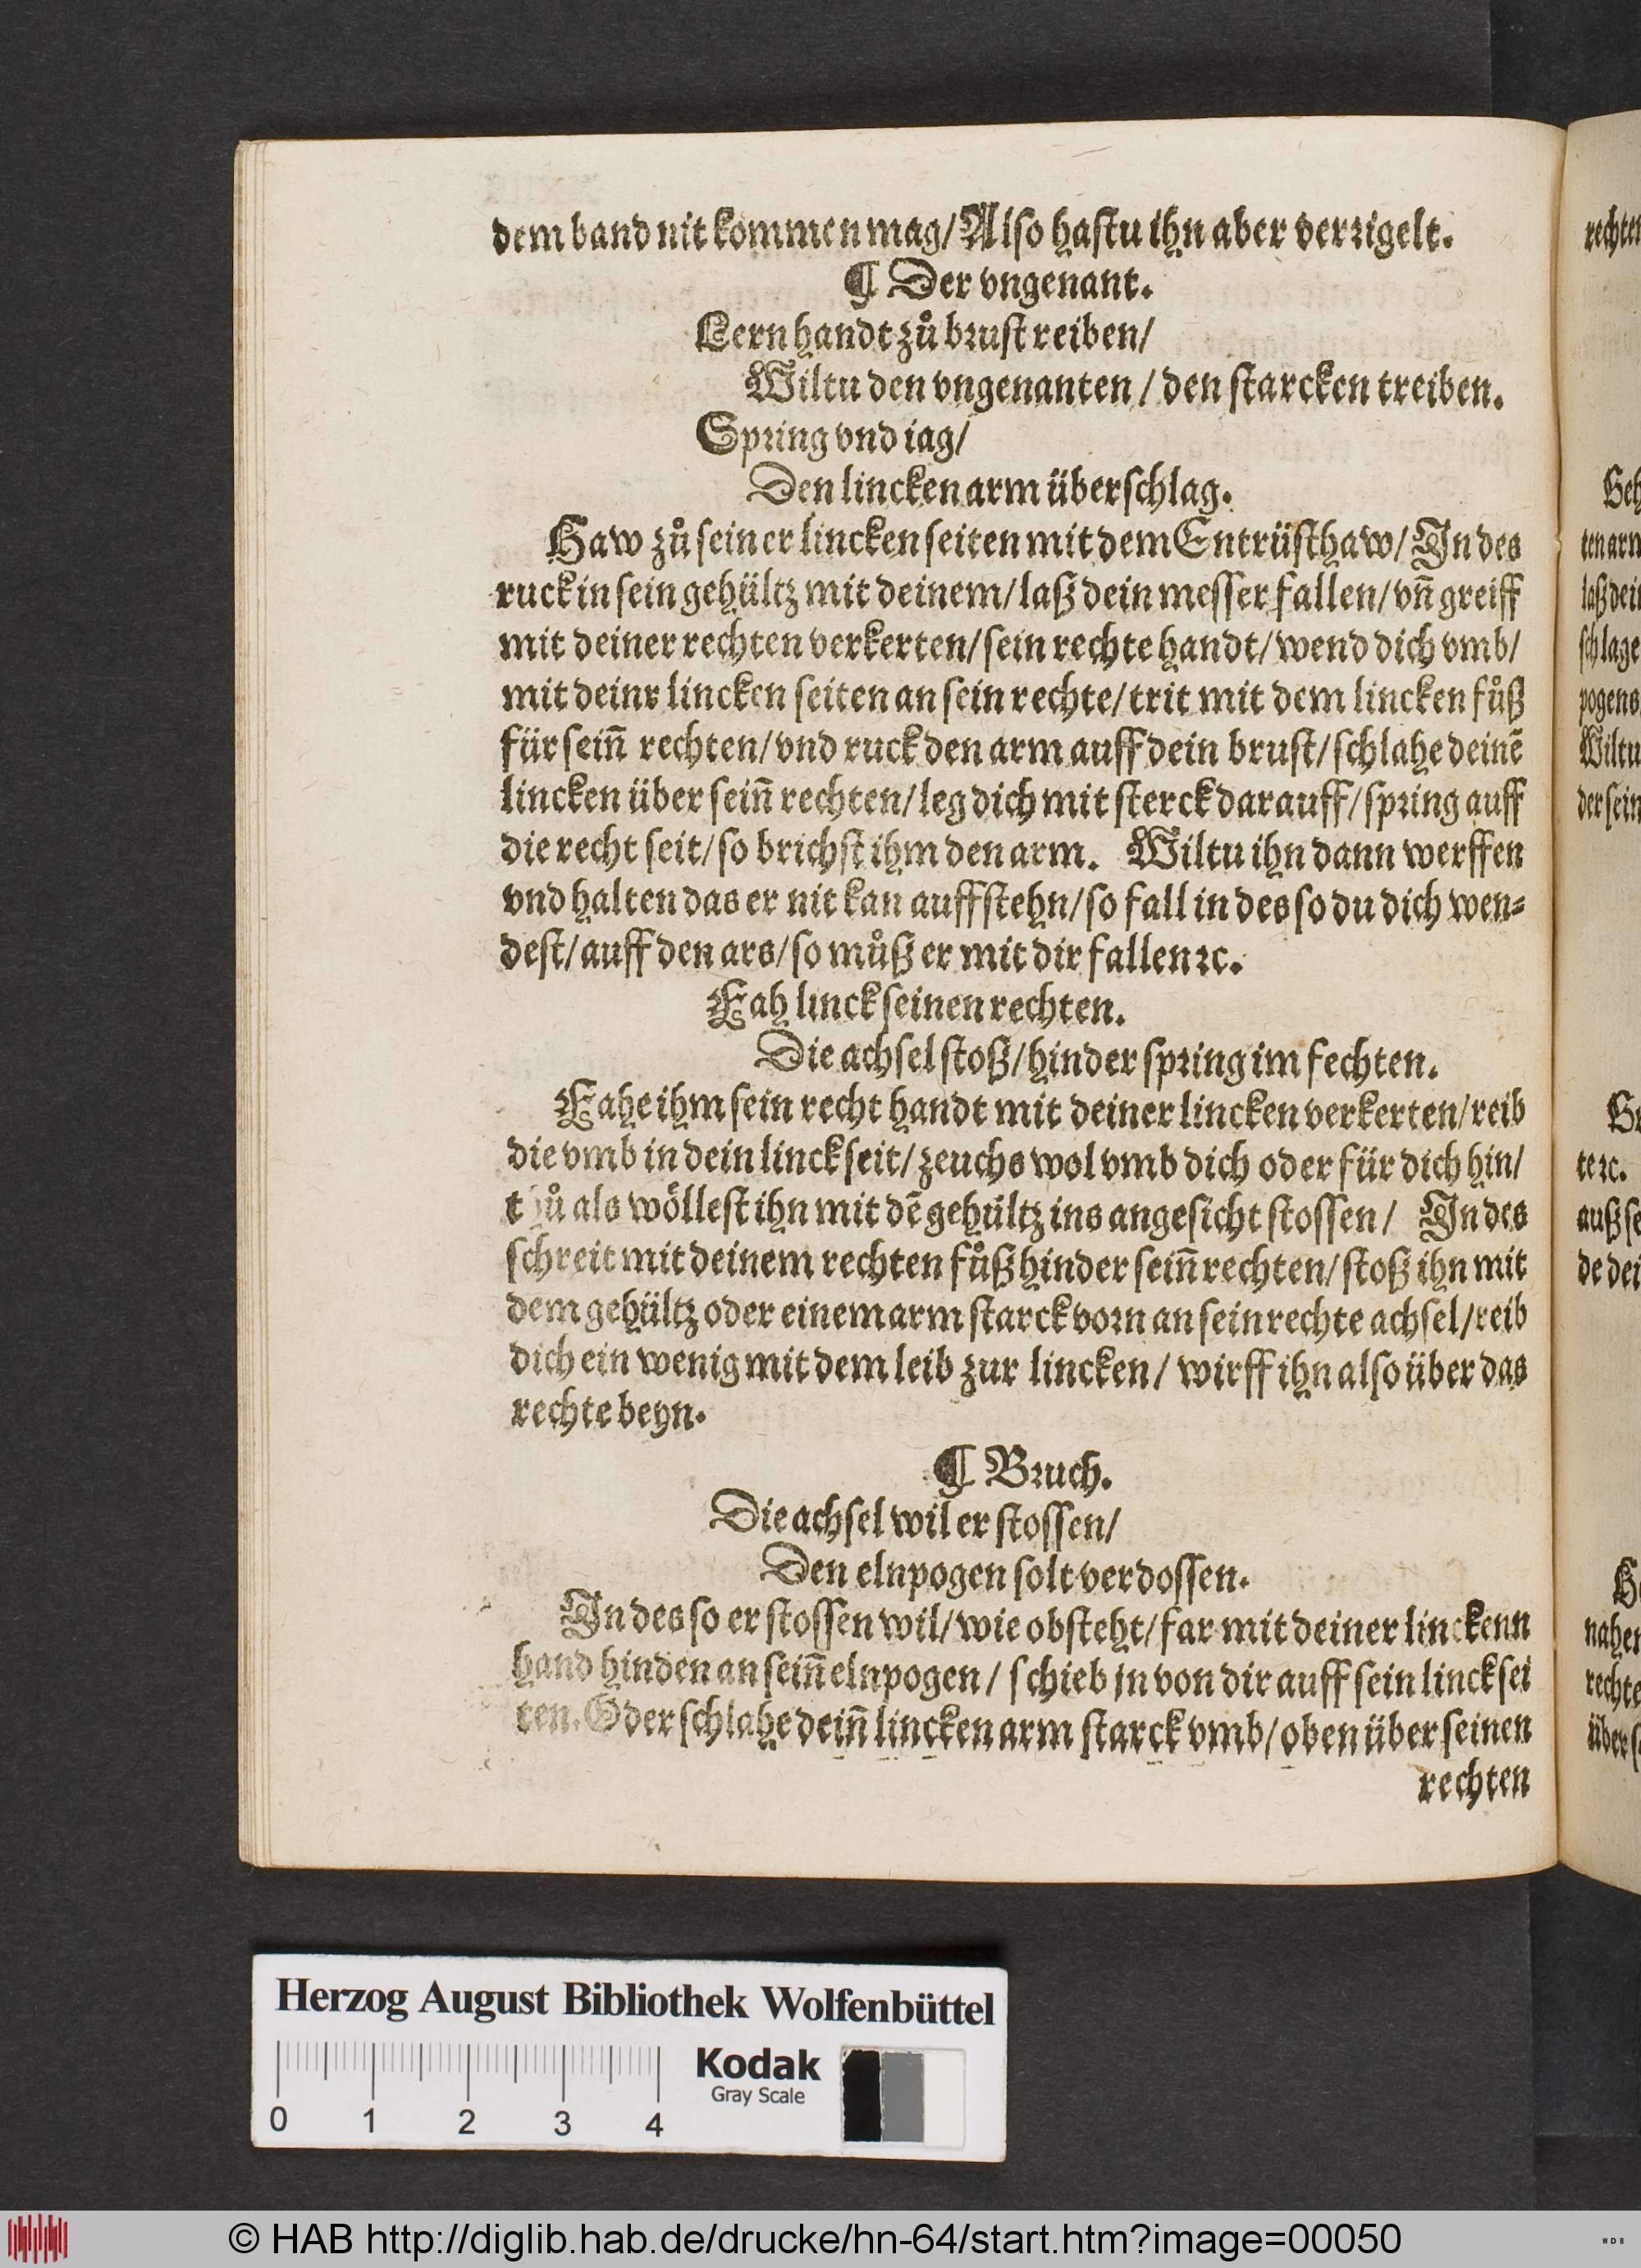 dem band nit kommen mag/ Also hastu ihn aber verrigelt.
¶ Der vngenant.
Lern handt zů brust reiben/
Wiltu den vngenanten/ den starcken treiben.
Spring vnd iag/
Den lincken arm überschlag.
Haw zů seiner lincken seiten mit dem Entrüsthaw/ In des
ruck in sein gehültz mit deinem/ laß dein messer fallen/ vñ greiff
mit deiner rechten verkerten/ sein rechte handt/ wend dich vmb/
mit deinr lincken seiten an sein rechte/ trit mit dem lincken fůß
für seiñ rechten/ vnd ruck den arm auff dein brust/ schlahe deinẽ
lincken über seiñ rechten/ leg dich mit sterck darauff/ spring auff
die recht seit/ so brichst ihm den arm. Wiltu ihn dann werffen
vnd halten das er nit kan auffstehn/ so fall in des so du dich wen⸗
dest/ auff den ars/ so můß er mit dir fallen ꝛc.
Fah linck seinen rechten.
Die achsel stoß/ hinder spring im fechten.
Fahe ihm sein recht handt mit deiner lincken verkerten/ reib
die vmb in dein linck seit/ zeuchs wol vmb dich oder für dich hin/
thů als wöllest ihn mit dẽ gehültz ins angesicht stossen/ In des
schreit mit deinem rechten fůß hinder seiñ rechten/ stoß ihn mit
dem gehültz oder einem arm starck vorn an sein rechte achsel/ reib
dich ein wenig mit dem leib zur lincken/ wirff ihn also über das
rechte beyn.
¶ Bruch.
Die achsel wil er stossen/
Den elnpogen solt verdossen.
In des so er stossen wil/ wie obsteht/ far mit deiner linckenn
hand hinden an seiñ elnpogen/ schieb jn von dir auff sein linck sei
ten. Oder schlahe deiñ lincken arm starck vmb/ oben über seinen
rechten
Herzog August Bibliothek Wolfenbüttel
Kodak
Gray Scale
0 1 2 3 4
© HAB http://diglib.hab.de/drucke/hn-64/start.htm?image=00050
WDB